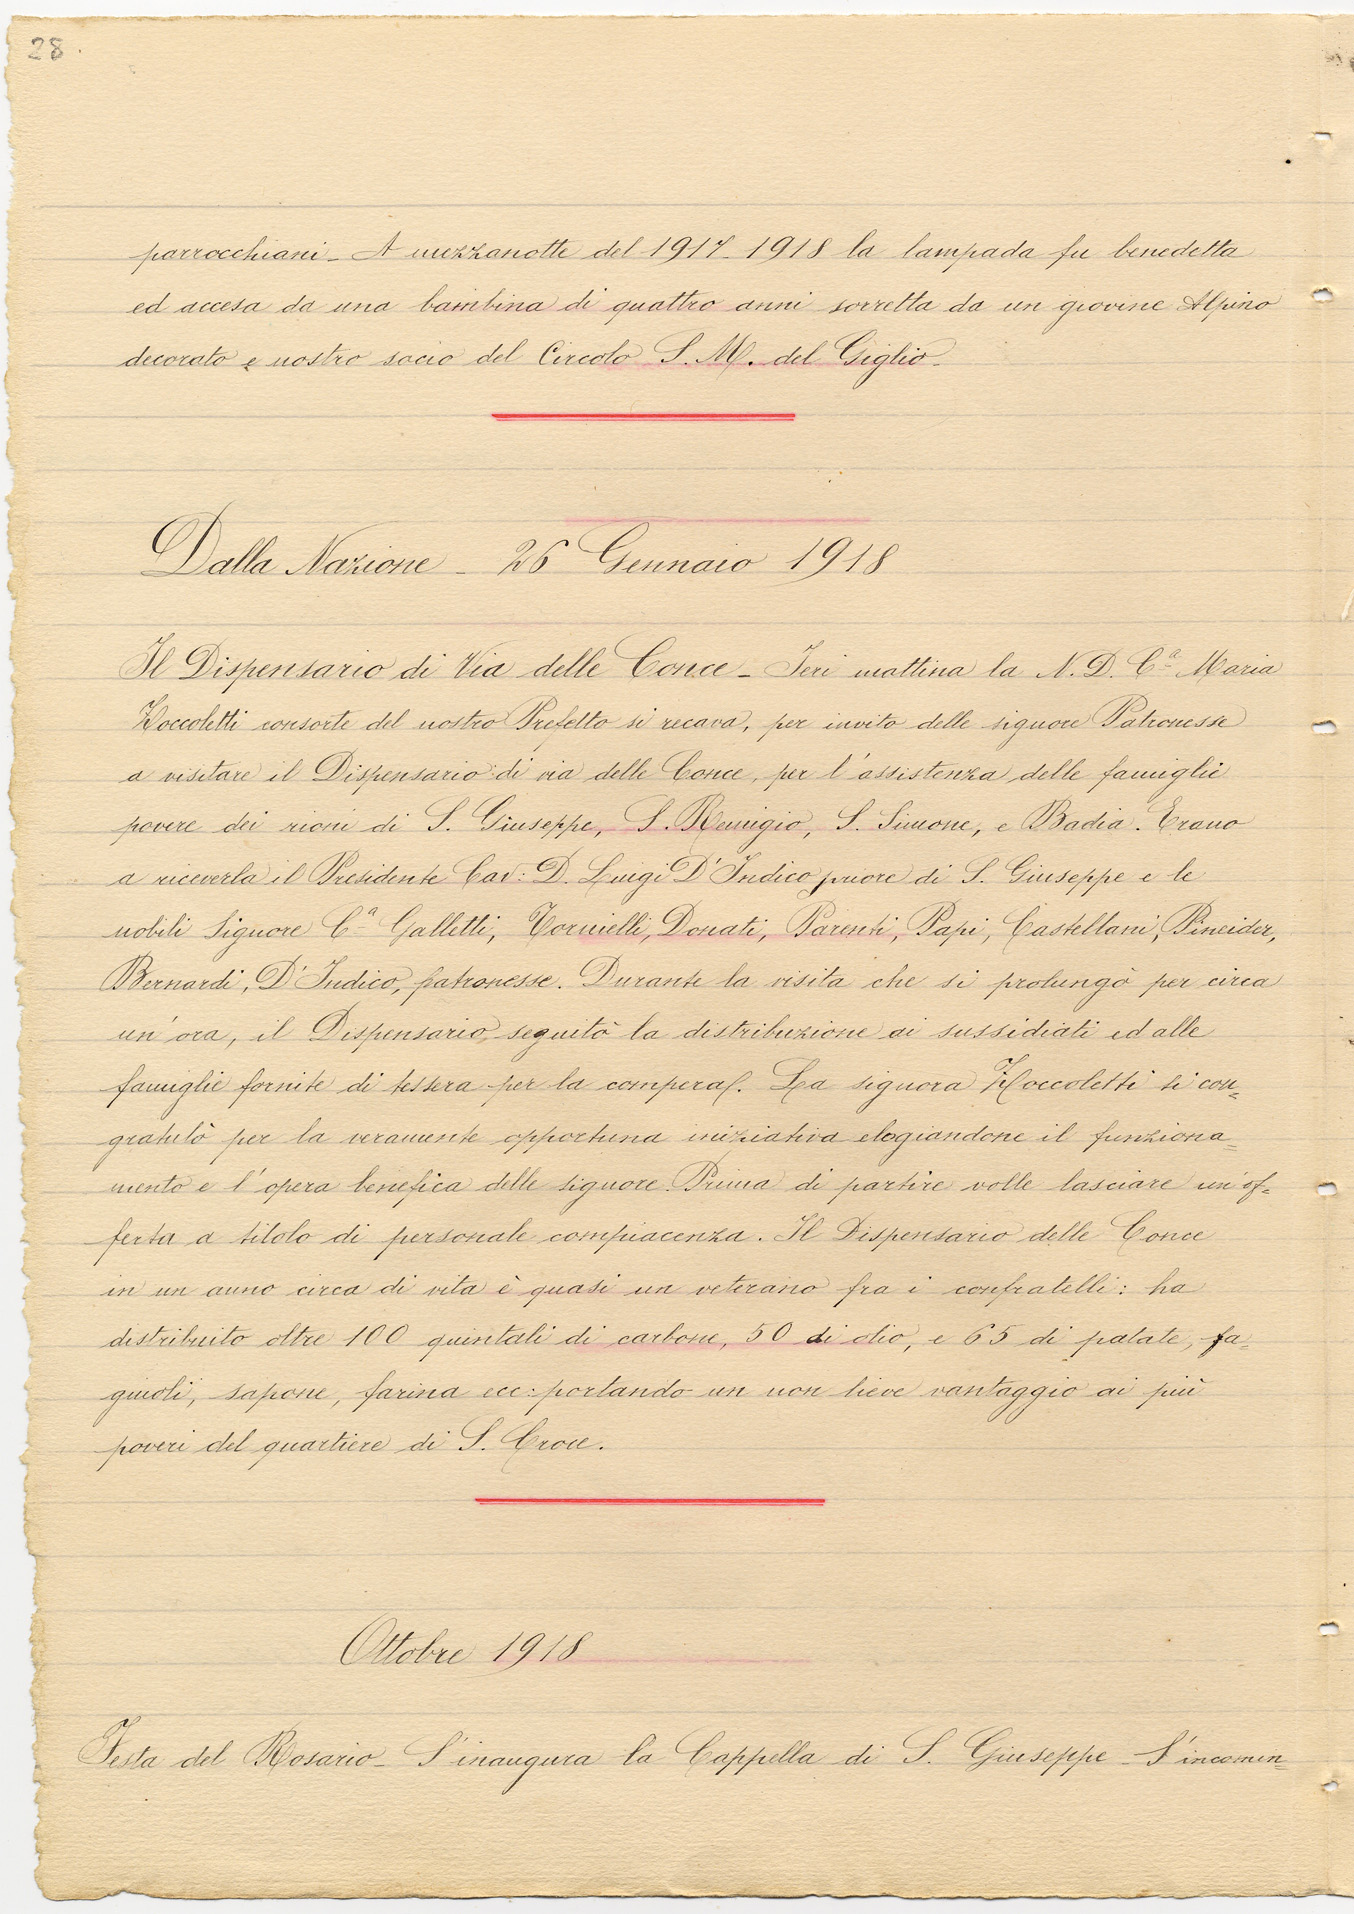 28.
parrocchiani_ A mezzanotte del 1917_1918 la lampada fu benedetta
ed accesa da una bambina di quattro anni sorretta da un giovine Alpino
decorato e nostro socio del Circolo S. M. del Giglio_
Dalla Nazione _ 26 Gennaio 1918
Il Dispensario di Via delle Conce _ Ieri mattina la N. D. Cª Maria
Zoccoletti consorte del nostro Prefetto si recava, per invito delle signore Patronesse
a visitare il Dispensario di via delle Conce, per l'assistenza delle famiglie
povere dei rioni di S. Giuseppe, S. Remigio, S. Simone, e Badia. Erano
a riceverla il Presidente Cav: D. Luigi D'Indico priore di S. Giuseppe e le
nobili Signore Cª Galletti, Tornielli, Donati, Parenti, Papi, Castellani, Pineider,
Bernardi, D'Indico, patronesse. Durante la visita che si prolungò per circa
un'ora, il Dispensario, seguitò la distribuzione ai sussidiati ed alle
famiglie fornite di tessera per la compera. La signora Zoccoletti si con=
gratulò per la veramente opportuna iniziativa elogiandone il funziona=
mento e l'opera benefica delle signore. Prima di partire volle lasciare un'of=
ferta a titolo di personale compiacenza. Il Dispensario delle Conce
in un anno circa di vita è quasi un veterano fra i confratelli: ha
distribuito oltre 100 quintali di carbone, 50 di olio, e 65 di patate, fa=
giuoli, sapone, farina ecc: portando un non lieve vantaggio ai più
poveri del quartiere di S. Croce.
Ottobre 1918
Festa del Rosario_ S'inaugura la Cappella di S. Giuseppe _ S'incomin=